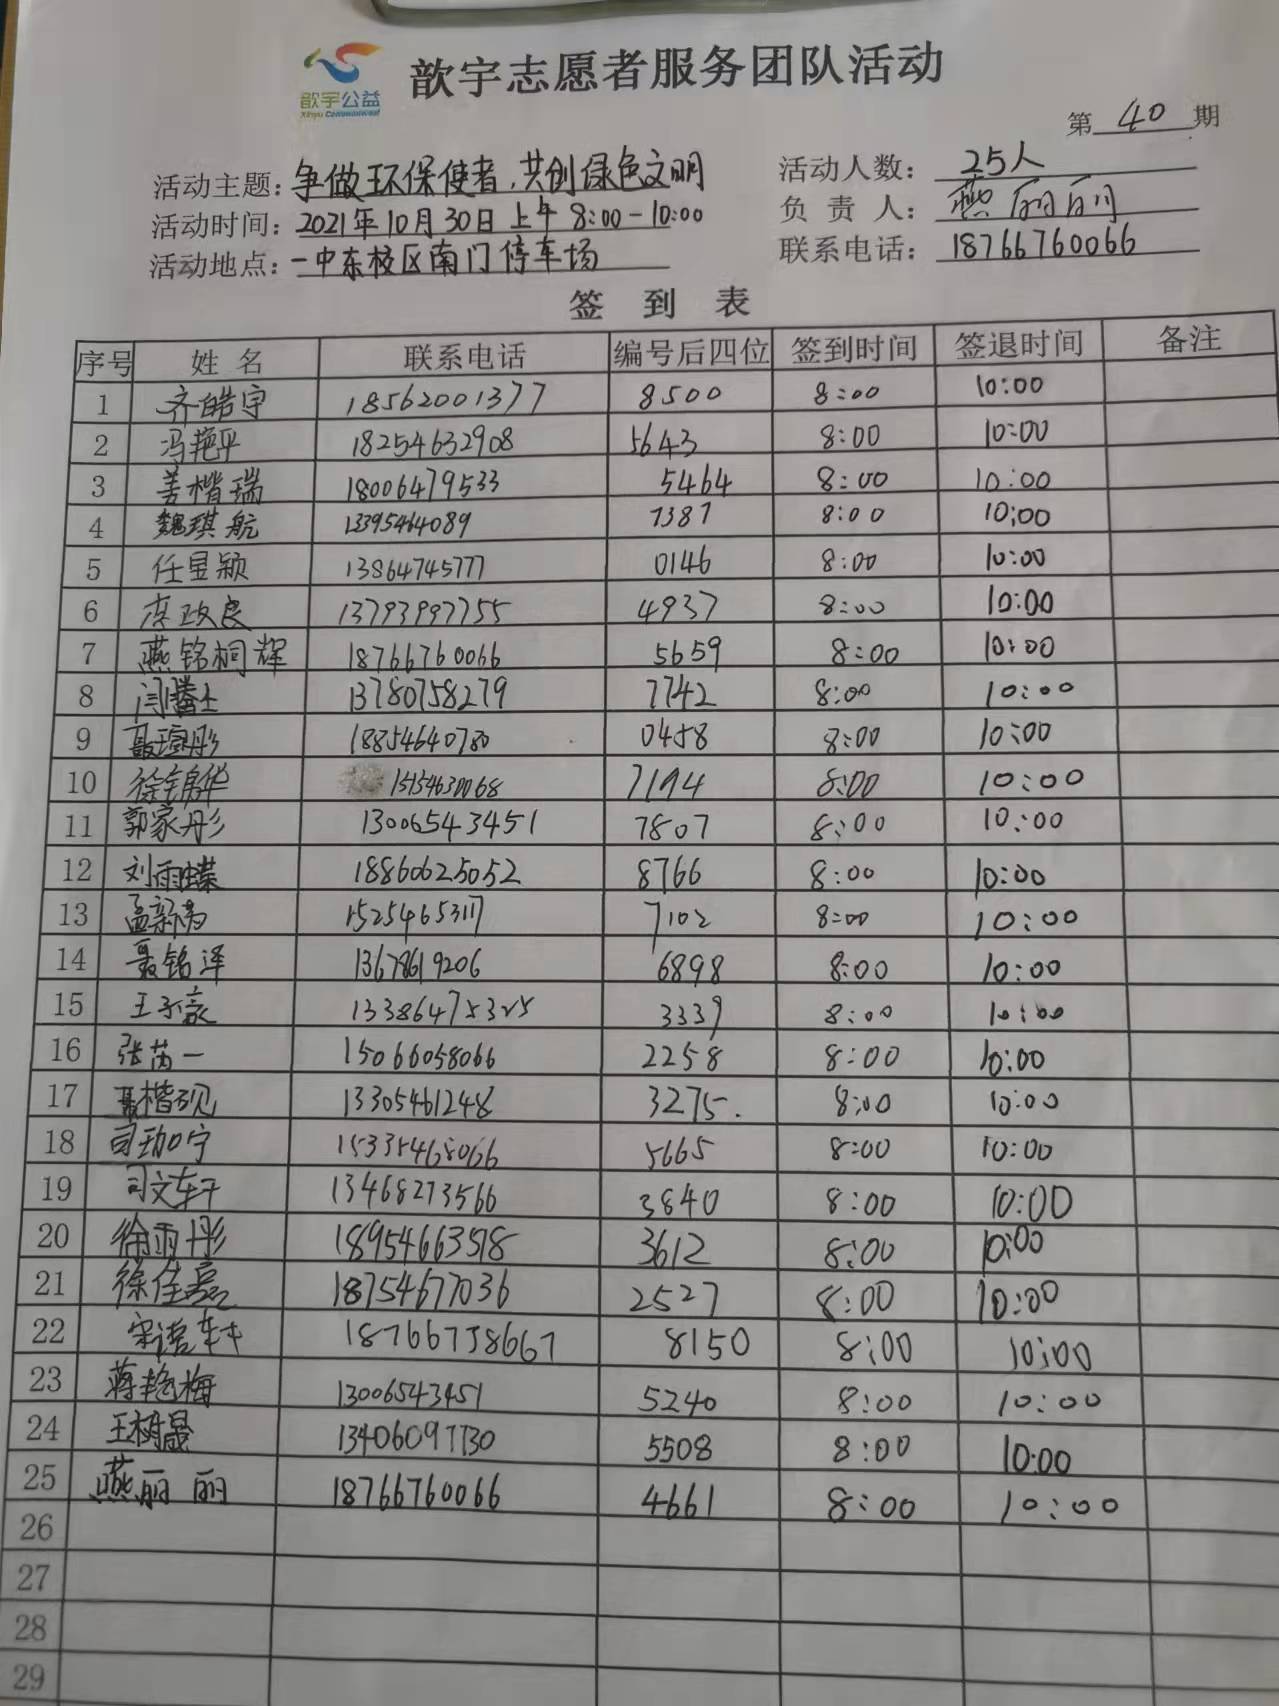 歆宇志愿者服务团队活动
歆宇公益
Xinyu Commonweal
第 40 期
活动主题：争做环保使者，共创绿色文明 活动人数：25人
活动时间：2021年10月30日上午8:00-10:00 负责人：燕丽丽
活动地点：一中东校区南门停车场 联系电话：18766760066
签到表
序号 姓名 联系电话 编号后四位 签到时间 签退时间 备注
1 齐皓宇 18562001377 8500 8:00 10:00
2 冯艳平 18254632908 5643 8:00 10:00
3 姜楷瑞 18006479533 5464 8:00 10:00
4 魏琪航 13395464089 7387 8:00 10:00
5 任昱颖 13864745777 0146 8:00 10:00
6 李政良 13793997755 4937 8:00 10:00
7 燕铭桐辉 18766760066 5659 8:00 10:00
8 13780758279 7742 8:00 10:00
9 聂瑄彤 18854640780 0458 8:00 10:00
10 徐锦华 15154630068 7194 8:00 10:00
11 郭家彤 13006543451 7807 8:00 10:00
12 刘雨蝶 18860625052 8766 8:00 10:00
13 15254653117 7102 8:00 10:00
14 聂铭泽 13678619206 6898 8:00 10:00
15 王子豪 13386475325 3339 8:00 10:00
16 张芮一 15066058066 2258 8:00 10:00
17 聂楷砚 13305461248 3275. 8:00 10:00
18 15335468066 5665 8:00 10:00
19 司文轩 13468273566 3840 8:00 10:00
20 徐雨彤 18954663518 3612 8:00 10:00
21 徐佳嘉 18754677036 2527 8:00 10:00
22 宋诺轩 18766738667 8150 8:00 10:00
23 蒋艳梅 13006543451 5240 8:00 10:00
24 王树晟 13406097730 5508 8:00 10:00
25 燕丽丽 18766760066 4661 8:00 10:00
26
27
28
29